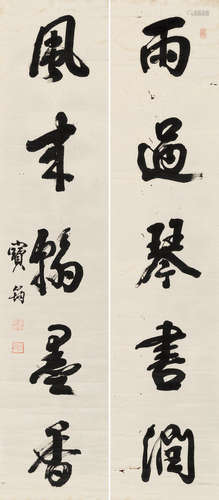 雨過琴書潤
風來翰墨香
寶鈞